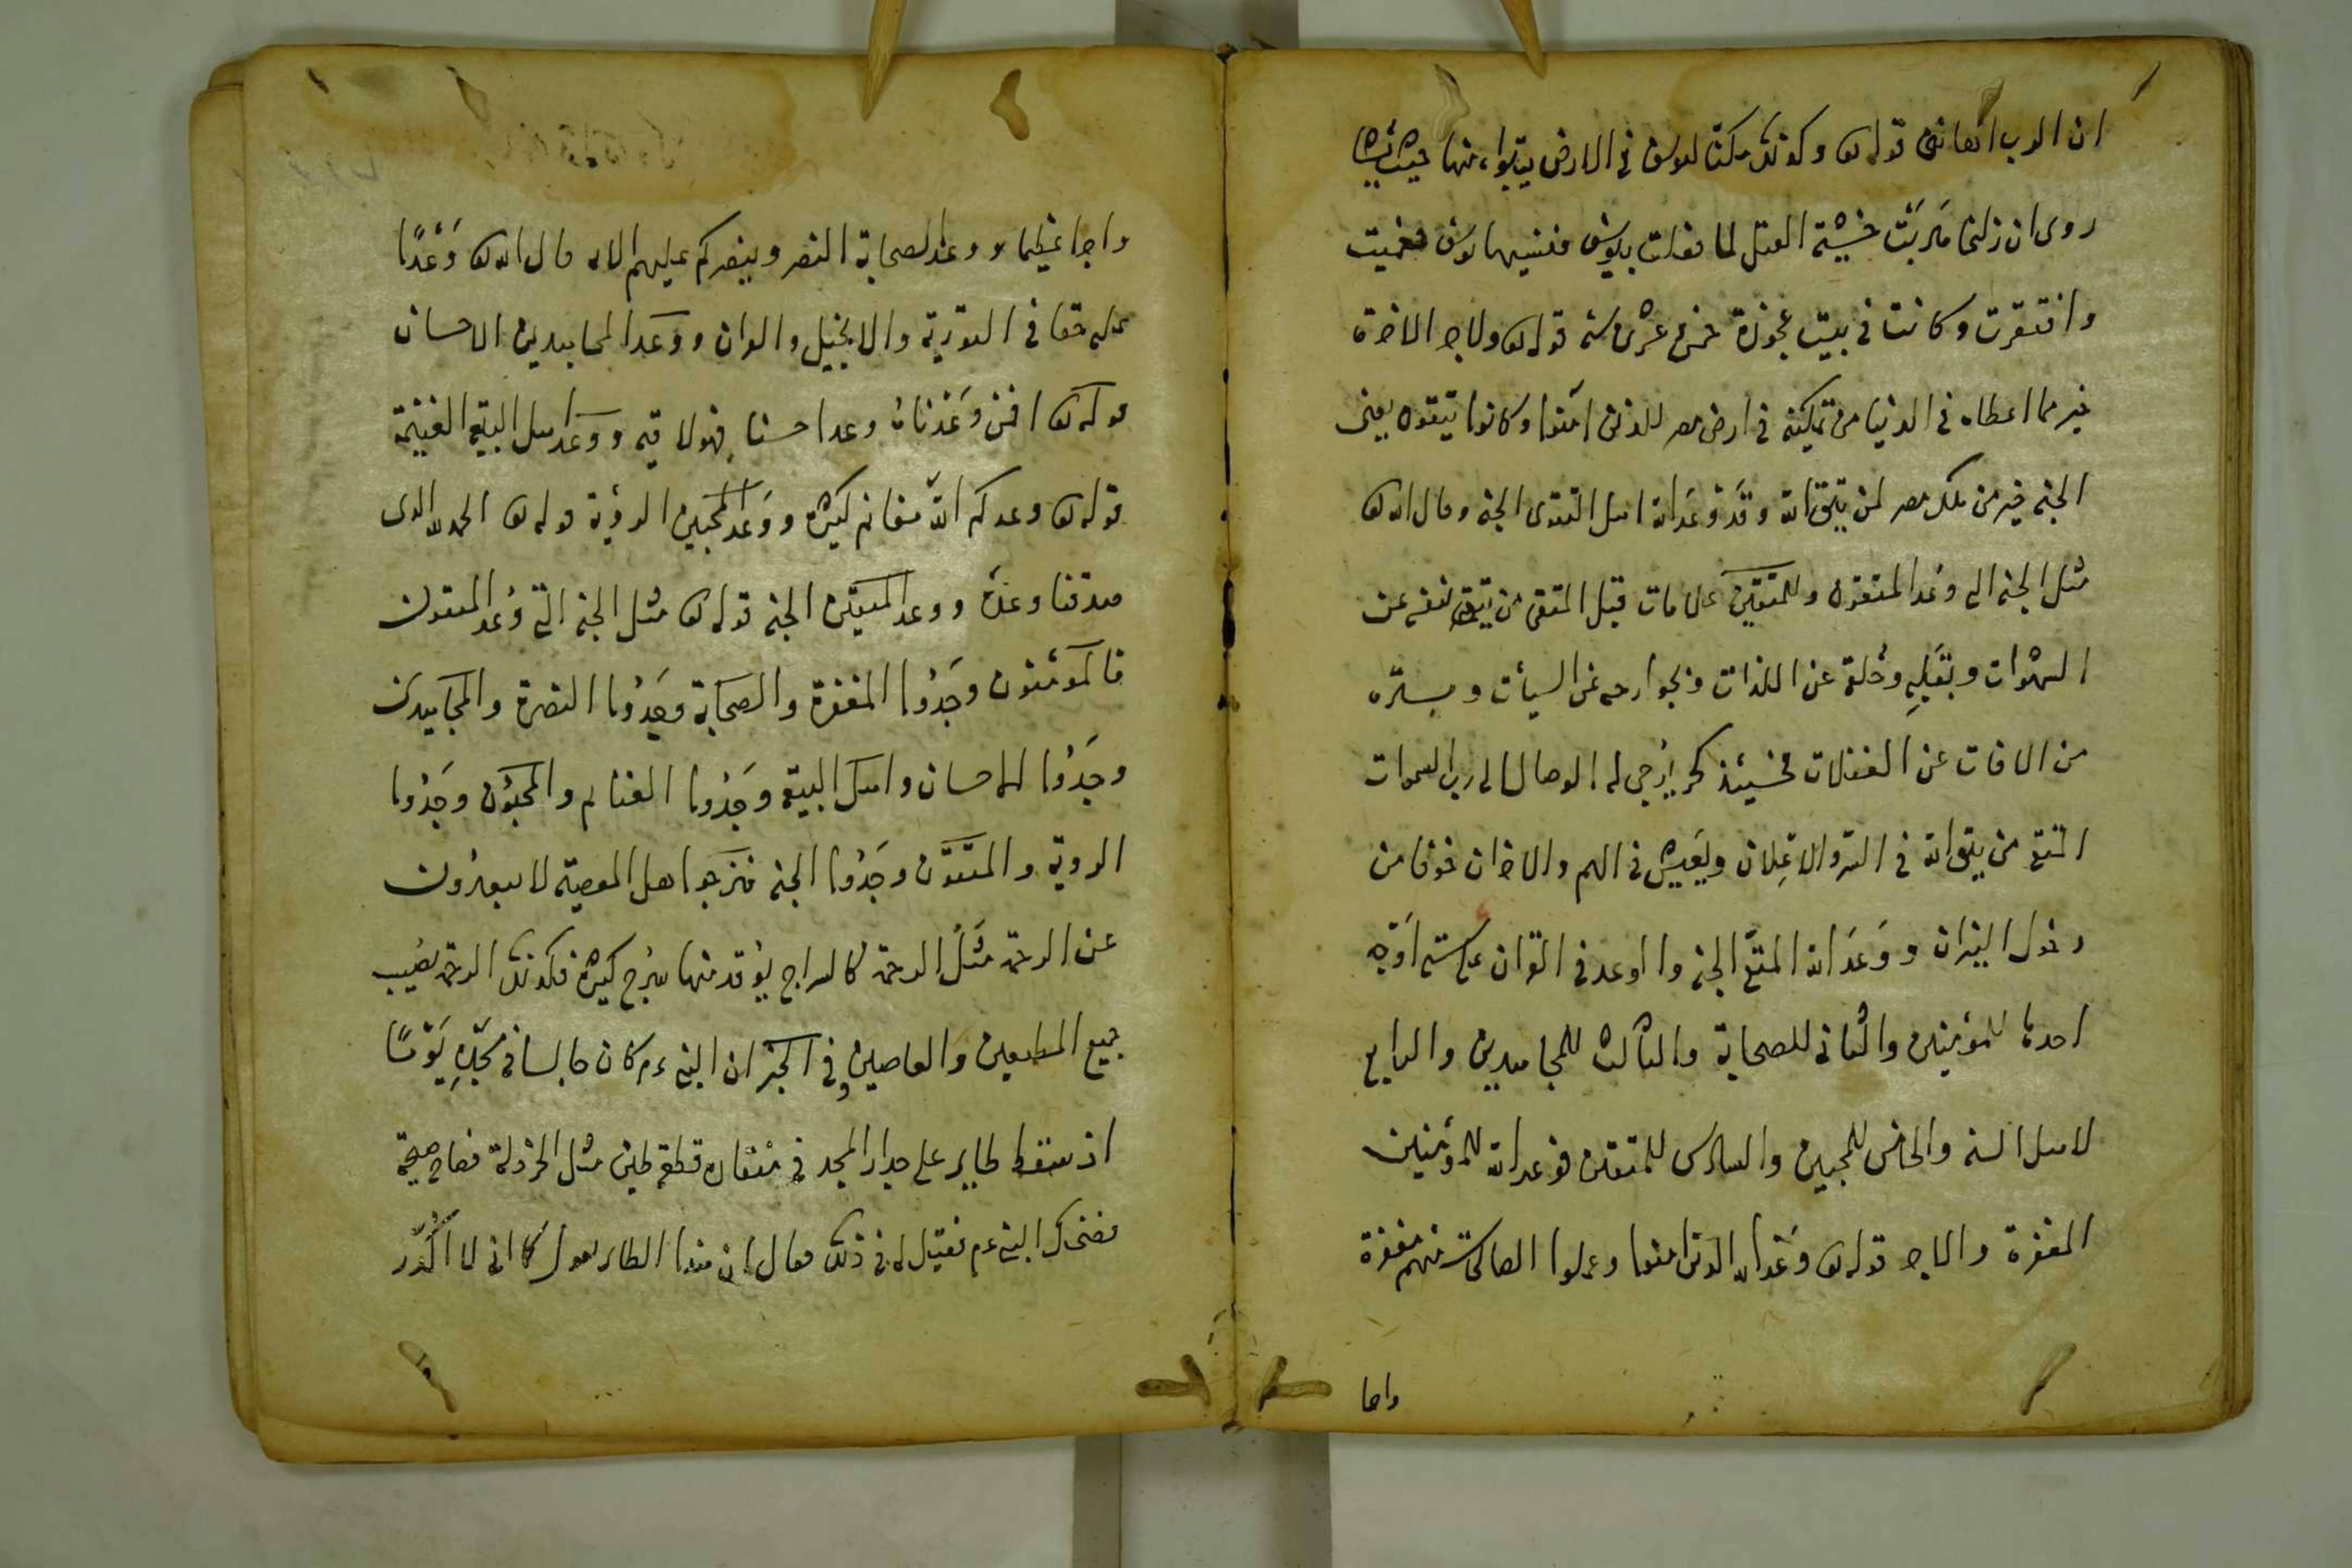 قوله تع وكذلك مكنا ليوسف في الارض يتبوا منها حيث يشا
روى ان زليخا هربت خشية القتل لما فعلت بيوسف فنسيها يوسف فعميت
وافتقرت وكانت في بيت عجوزة خمس عشرة سنة قوله تع ولاجر الاخرة
خير مما اعطاه في الدنيا من تمكينه في ارض مصر للذين آمنوا وكانوا يتقون يعنى
الجنة خير من ملك مصر لمن يتق الله وقد وَعَد الله اهل التقوى الجنة وقال الله تع
مثل الجنة التي وُعد المتقون وللمتقين علامات قيل المتقى من يتقى نفسه عن
الشهوات وبقلبه وخلقه عن اللذات وبجوارحه عن السيأت وبسره
من الافات عن الغفلات فحينئذ يُرجى له الوصال الى رب السموات
المتقى من يتق الله في السر والاعلان ويعيش في الهم والاحزان خوفا من
دخول النيران ووَعَد الله المتقى الجنة والوعد في القران على ستة اوجه
احدها للمؤمنين والثانى للصحابة والثالث للمجاهدين والرابع
لاهل السنه والخامس للمحبين والسادس للمتقين فوعد الله للمؤمنين
المغفرة والاجر قوله تع وَعَد الله الذين امنوا وعملوا الصالحات منهم مغفرة
واجرا
واجرا عظيما ووعد الصحابة النصر وينصركم عليهم الايه قال الله تع وَعْدًا
عليه حقا في التورية والانجيل والقران ووَعَد المجاهدين الاحسان
قوله تع افمن وَعَدْناهُ وعدا حسنا فهو لاقيه ووَعَد اهل البيعة الغنيمة
قوله تع وعدكم الله مغانم كثيرة ووَعَد المحبين الرؤية قوله تع الحمد لله الذى
صدقنا وعدَه ووعد المتقين الجنة قوله تع مثل الجنة التي وُعد المتقون
فالمؤمنون وجَدُوا المغفرة والصحابة وجَدُوا النصرة والمجاهدين
وجَدُوا الاحسان واهل البيعة وجَدُوا الغنايم والمحبّون وجَدُوا
الروية والمتقون وجَدُوا الجنة فنرجوا اهل المعصية لا يبعدون
عن الرحمة مَثَلُ الرحمة كالسراج يوقد منها سُرُج كثيرة فكذلك الرحمة يصيب
جميع المطيعين والعاصين وفي الخبر ان النبي عم كان جالسا في مسجده يَوْمًا
اذ سقط طاير على جدار المسجد في منقاره قطعة طين مثل الخردلة فصاح صيحة
فضحك النبي عم فقيل له في ذلك فقال ان هذا الطاير يقول انى لا اكدر